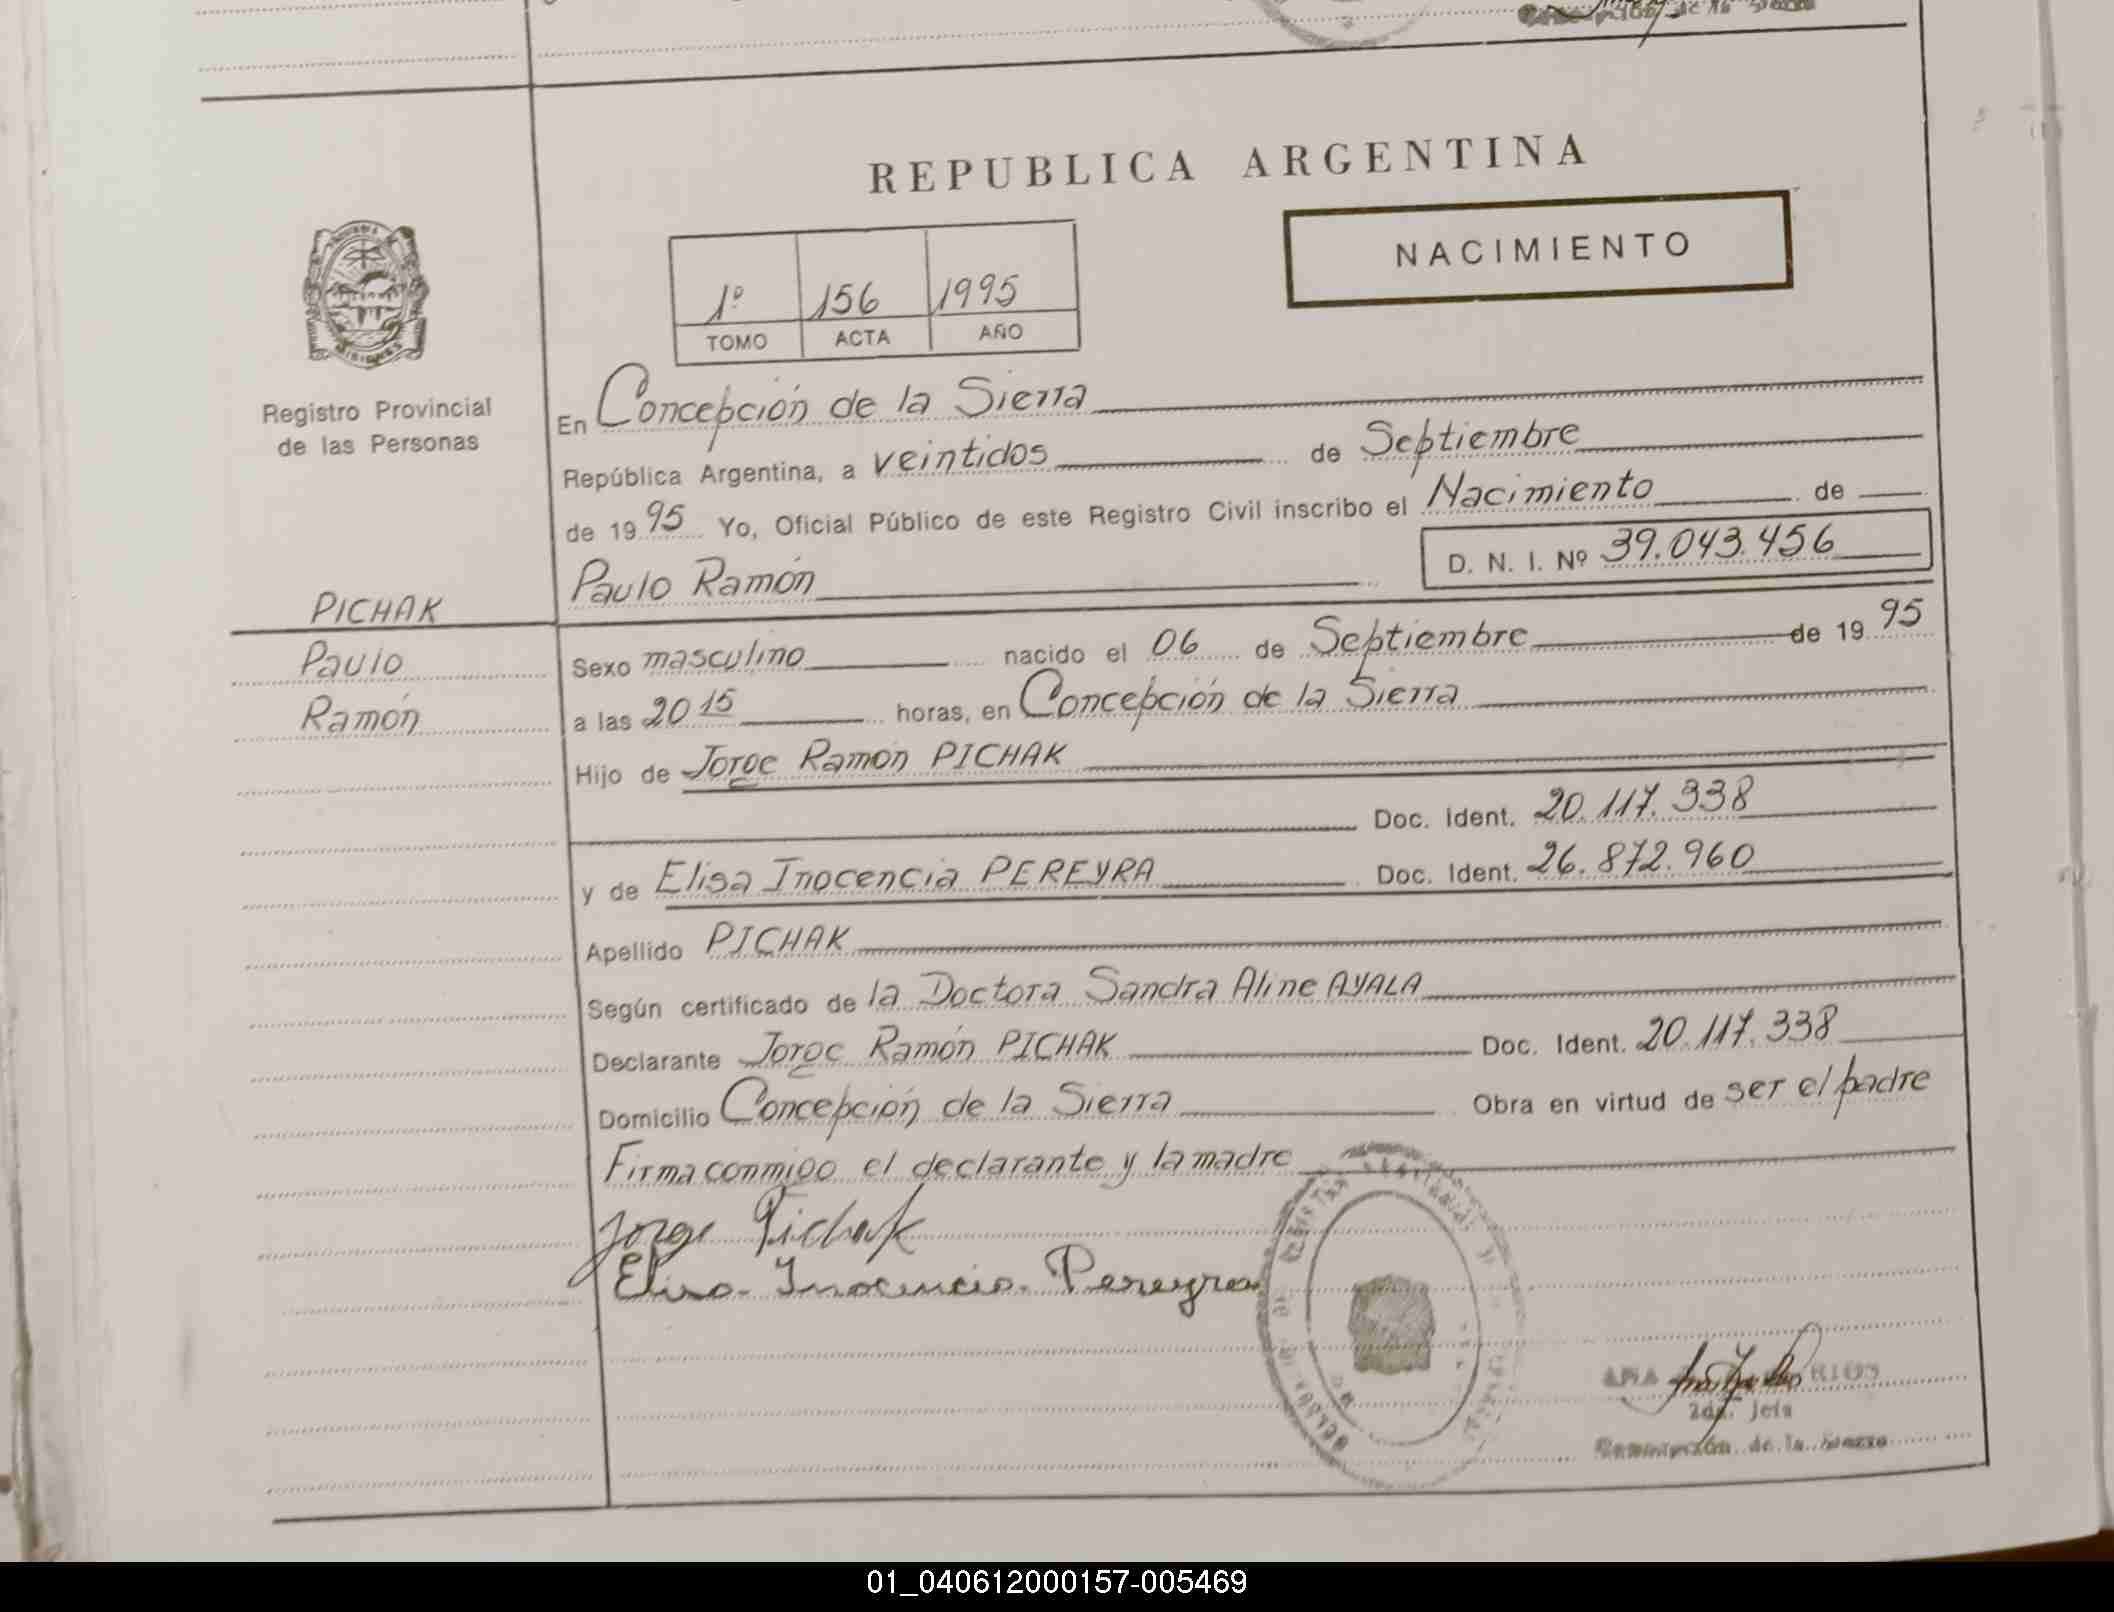 REPUBLICA ARGENTINA
NACIMIENTO
1º 156 1995
TOMO ACTA AÑO
Registro Provincial
de las Personas
En Concepción de la Sierra
República Argentina, a veintidos de Septiembre
de 1995 Yo, Oficial Público de este Registro Civil inscribo el Nacimiento de
Paulo Ramón D. N. I. Nº 39.043.456
PICHAK
Paulo
Ramón
Sexo masculino nacido el 06 de Septiembre de 1995
a las 20 15 horas, en Concepción de la Sierra
Hijo de Jorge Ramón PICHAK
Doc. Ident. 20.117.338
y de Elisa Inocencia PEREYRA Doc. Ident. 26.872.960
Apellido PICHAK
Según certificado de la Doctora Sandra Aline AYALA
Declarante Jorge Ramón PICHAK Doc. Ident. 20.117.338
Domicilio Concepción de la Sierra Obra en virtud de ser el padre
Firma conmigo el declarante y la madre
Jorge Pichak
Elisa Inocencia Pereyra
ANA RIOS
2da. Jefa
Concepción de la Sierra
01_040612000157-005469